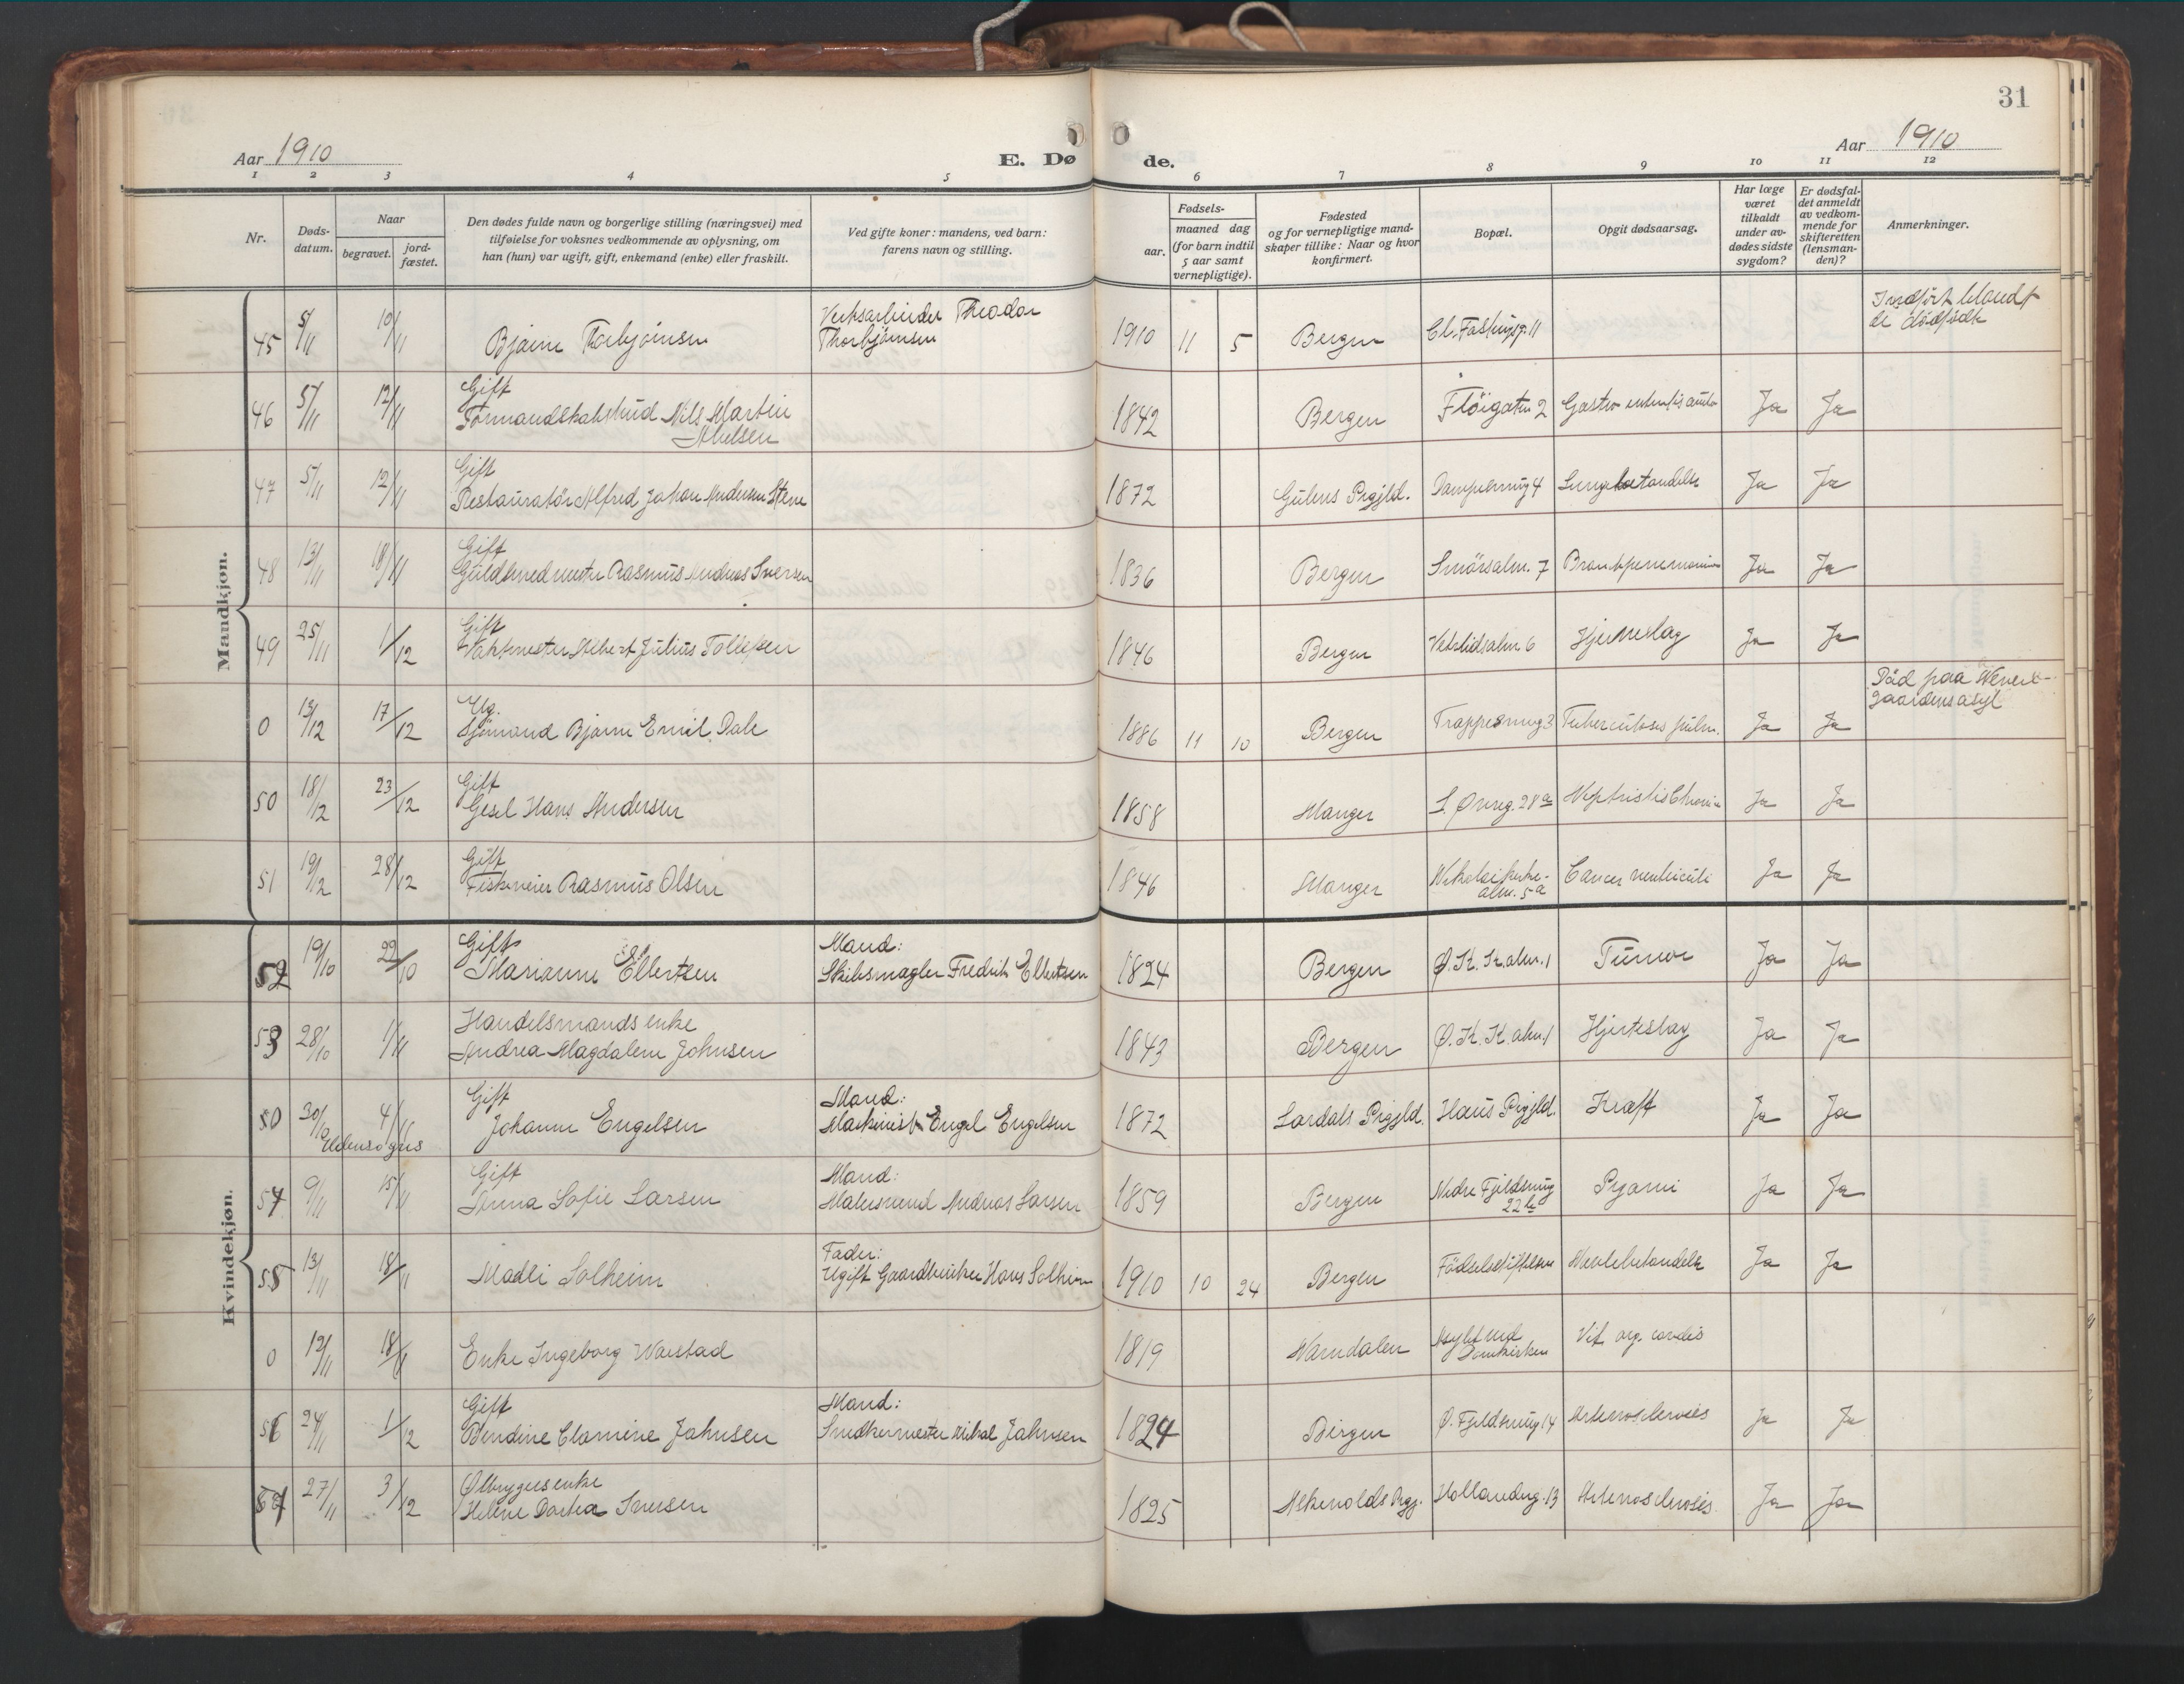 31
Aar 1910
E. Dø de.
Aar 1910
1 2 3 4 5 6 7 8 9 10 11 12
Nr.
Døds-
datum.
Naar
begravet.
jord-
fæstet.
Den dødes fulde navn og borgerlige stilling (næringsvei) med
tilføielse for voksnes vedkommende av oplysning, om
han (hun) var ugift, gift, enkemand (enke) eller fraskilt.
Ved gifte koner: mandens, ved barn:
farens navn og stilling.
Fødsels-
aar.
maaned dag
(for barn indtil
5 aar samt
vernepligtige).
Fødested
og for vernepligtige mand-
skaper tillike: Naar og hvor
konfirmert.
Bopæl.
Opgit dødsaarsag.
Har læge
været
tilkaldt
under av-
dødes sidste
sygdom?
Er dødsfal-
det anmeldt
av vedkom-
mende for
skifteretten
(lensman-
den)?
Anmerkninger.
Mandkjøn.
45 5/11 10/11 Bjarne Thorbjörnsen
Verksarbeider Theodor
Thorbjörnsen
1910 11 5 Bergen 11
Indfört blandt
de dödfödte
46 5/11 12/11 Gift
Nils Martin
1842 Bergen Flöigaten 2 Ja Ja
47 5/11 12/11 Gift
Restauratör Alfred Johan Andersen Stene
1872 Gulens Prgjld. 4 Lungebetændelse Ja Ja
48 13/11 18/11 Gift
Guldsmedmester Rasmus Andreas Iversen
1836 Bergen Smörsalm. 7 Ja Ja
49 25/11 1/12 Gift
Vaktmester Albert Julius Tollefsen
1846 Bergen Vetrlidsalm 6 Hjerneslag Ja Ja
0 13/12 17/12 Ug.
Sjömand Bjarne Emil Dale
1886 11 10 Bergen Trappesmug 3 Tuberculoses pulm. Ja Ja
Död paa
gaardens asyl
50 18/12 23/12 Gift
Gesel Hans Andersen
1858 Manger 28a Ja Ja
51 19/12 28/12 Gift
Rasmus Olsen
1846 Manger Nikolaikirke-
alm. 5a
Cancer ventriculi Ja Ja
Kvindekjøn.
52 19/10 22/10 Gift
Marianne Ellertsen
Mand:
Skibsmægler Fredrik Ellertsen
1824 Bergen Ø. K. K. alm. 1 Tumor Ja Ja
53 28/10 1/11 Handelsmands enke
Andrea Magdalene Johnsen
1843 Bergen Ø. K. K. alm. 1 Hjerteslag Ja Ja
50 30/10 4/11 Gift
Johanne Engelsen
Udensognes
Mand:
Maskinist Engel Engelsen
1872 Lærdals Prgjld. Haus Prgjld. Kræft Ja Ja
54 9/11 15/11 Gift
Anna Sofie Larsen
Mand:
Andreas Larsen
1859 Bergen Nedre Fjeldsmug
22b
Pyæmi Ja Ja
55 13/11 18/11 Madli Solheim
Fader:
Ugift Gaardbruker Hans Solheim
1910 10 24 Bergen Födselsstiftelsen Ja Ja
0 12/11 18/11 Enke Ingeborg
1819 Asylet ved
Domkirken
Vit. org. cordis
56 24/11 1/12 Gift
Bendine Clamine Jahnsen
Mand:
Snedkermester Mikal Jahnsen
1824 Bergen Ø. Fjeldsmug 14 Arteriosclerosis Ja Ja
57 27/11 3/12 Ølbryggersenke
Helene Dorthea Iversen
1825 Askevolds Prgj. Hollendrg. 13 Arteriosclerosis. Ja Ja